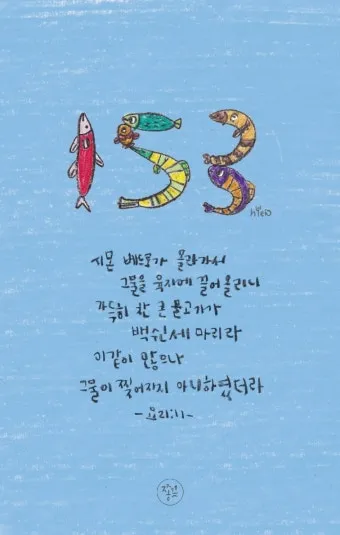 153
HYEW
시몬 베드로가 올라가서
그물을 육지에 끌어올리니
가득히 찬 큰 물고기가
백쉰세 마리라
이같이 많으나
그물이 찢어지지 아니하였더라
-요21:11-